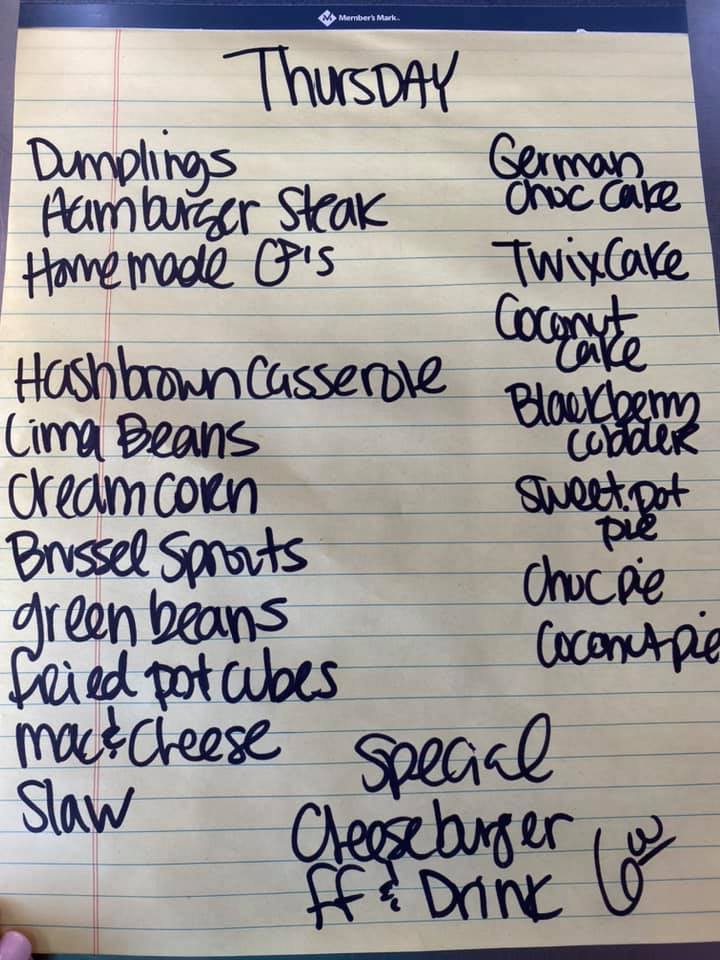 Member's Mark
THURSDAY
Dumplings
Hamburger Steak
Homemade CP's
Hashbrown Casserole
Lima Beans
Cream Corn
Brussel Sprouts
green beans
fried pot cubes
mac & Cheese
Slaw
German
Choc Cake
Twix Cake
Coconut
Cake
Blackberry
Cobbler
Sweet.pot
pie
Choc pie
Coconut pie
Special
Cheeseburger
ff & Drink 6